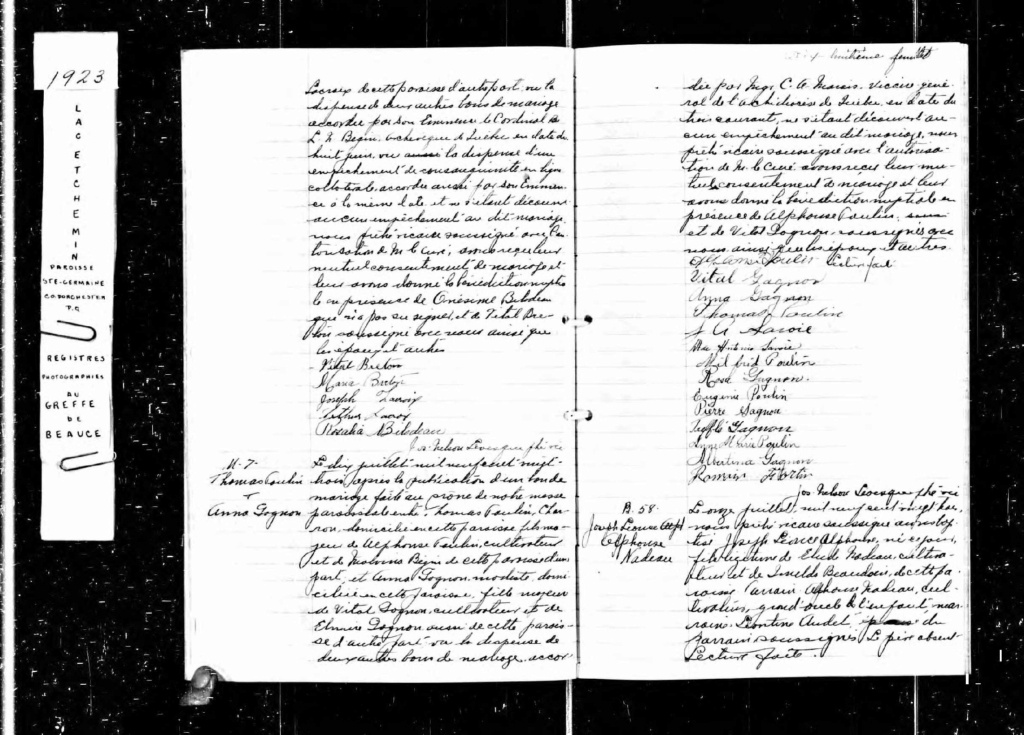 1923
LAC ETCHEMIN
PAROISSE
STE-GERMAINE
CO. DORCHESTER
P.Q.
REGISTRES
PHOTOGRAPHIES
AU
GREFFE
DE
BEAUCE
Lacroix de cette paroisse d'autre part, vu la
dispense de deux autres bans de mariage
accordée par son Eminence le Cardinal
L. N. Begin, archevêque de Québec en date du
huit juin, vu aussi la dispense d'un
empêchement de consanguinité en ligne
collatérale accordée aussi par son Eminen-
ce à la même date et ne s'étant découvert
aucun empêchement au dit mariage,
nous prêtre vicaire soussigné avec l'au-
torisation de M. le Curé, avons reçu leur
mutuel consentement de mariage et
leur avons donné la bénédiction nuptia-
le en présence de Onésime Bilodeau
qui n'a pas su signer, et de Vital Bre-
ton soussigné avec nous ainsi que
les époux et autres
Vital Breton
Joseph Lacroix
Rosalia Bilodeau
Jos. Nelson Levesque ptre vic
M. 7.
Thomas Poulin
+
Anna Gagnon
Le dix juillet mil neuf cent vingt-
trois, après la publication d'un ban de
mariage faite au prône de notre messe
paroissiale entre Thomas Poulin, Char-
ron, domicilié en cette paroisse fils ma-
jeur de Alphonse Poulin, cultivateur
et de Malvina Begin de cette paroisse d'une
part, et Anna Gagnon, modiste, domi-
ciliée en cette paroisse, fille majeure
de Vital Gagnon, cultivateur et de
Elmire Gagnon aussi de cette parois-
se d'autre part vu la dispense de
deux autres bans de mariage, accor-
huitième feuillet
dée par Mgr. C. A. Marois, vicaire géné-
ral de l'archidiocèse de Québec, en date du
trois courant, ne s'étant découvert au-
cun empêchement au dit mariage, nous
prêtre vicaire soussigné avec l'autorisa-
tion de M. le Curé avons reçu leur mu-
tuel consentement de mariage et leur
avons donné la bénédiction nuptiale en
présence de Alphonse Poulin,
et de Vital Gagnon, soussignés avec
nous ainsi que les époux et autres
Alphonse Poulin Lecture faite
Vital Gagnon
Anna Gagnon
Thomas Poulin
J A Lavoie
Mde Antonio Lavoie
Wilfrid Poulin
Rose Gagnon.
Eugénie Poulin
Pierre Gagnon
Gagnon
Anne Marie Poulin
Albertina Gagnon
Roméo Fortin
Jos. Nelson Levesque ptre vic
B. 58.
Joseph Léonce Alph
Alphonse
Nadeau
Le onze juillet, mil neuf cent vingt trois,
nous prêtre vicaire soussigné avons bap-
tisé Joseph Léonce Alphonse, né ce jour,
fils légitime de Nadeau, cultiva-
teur et de Imelda Beaudoin, de cette pa-
roisse Parrain Alphonse Nadeau, cul-
tivateur, grand'oncle de l'enfant, mar-
raine Léontine Audet, du
parrain soussignés. Le père absent
Lecture faite.